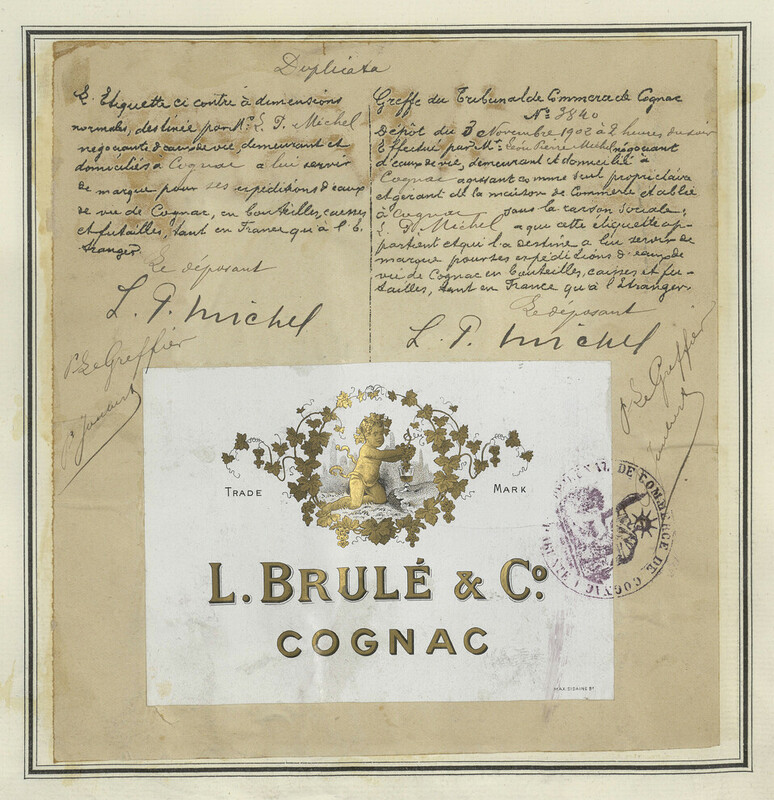 Duplicata
L'Etiquette ci contre à dimensions
normales, destinée par Mr. L. P. Michel
négociant d'eaux de vie, demeurant et
domicilié à Cognac a lui servir
de marque pour ses expéditions d'eaux
de vie de Cognac, en bouteilles, caisses
et futailles, tant en France qu'à l'é-
tranger.
Le déposant
L. P. Michel
Pr Le Greffier
Greffe du Tribunal de Commerce de Cognac
No. 3840
Dépôt du 3 Novembre 1902 à 2 heures du soir
Effectué par Mr. Léon Pierre Michel négociant
d'eaux de vie, demeurant et domicilié à
Cognac agissant comme seul propriétaire
et gérant de la maison de Commerce établie
à Cognac sous la raison sociale:
L. P. Michel que cette étiquette ap-
partient et qu'il l'a destine a lui servir de
marque pour ses expéditions d'eaux de
vie de Cognac en bouteilles, caisses et fu-
tailles, tant en France qu'à l'Etranger.
Le déposant
L. P. Michel
Pr Le Greffier
TRADE MARK
L. BRULÉ & Co.
COGNAC
TRIBUNAL DE COMMERCE DE COGNAC